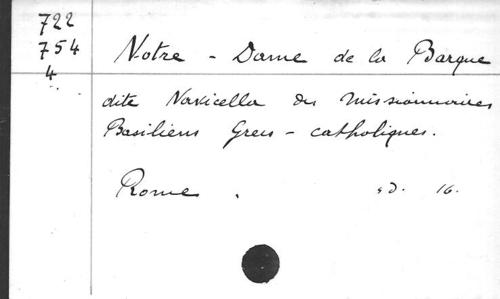 722
754
4
Notre - Dame de la Barque
dite Navicella des missionnaires
Basiliens Grecs - catholiques.
Rome . s d. 16.